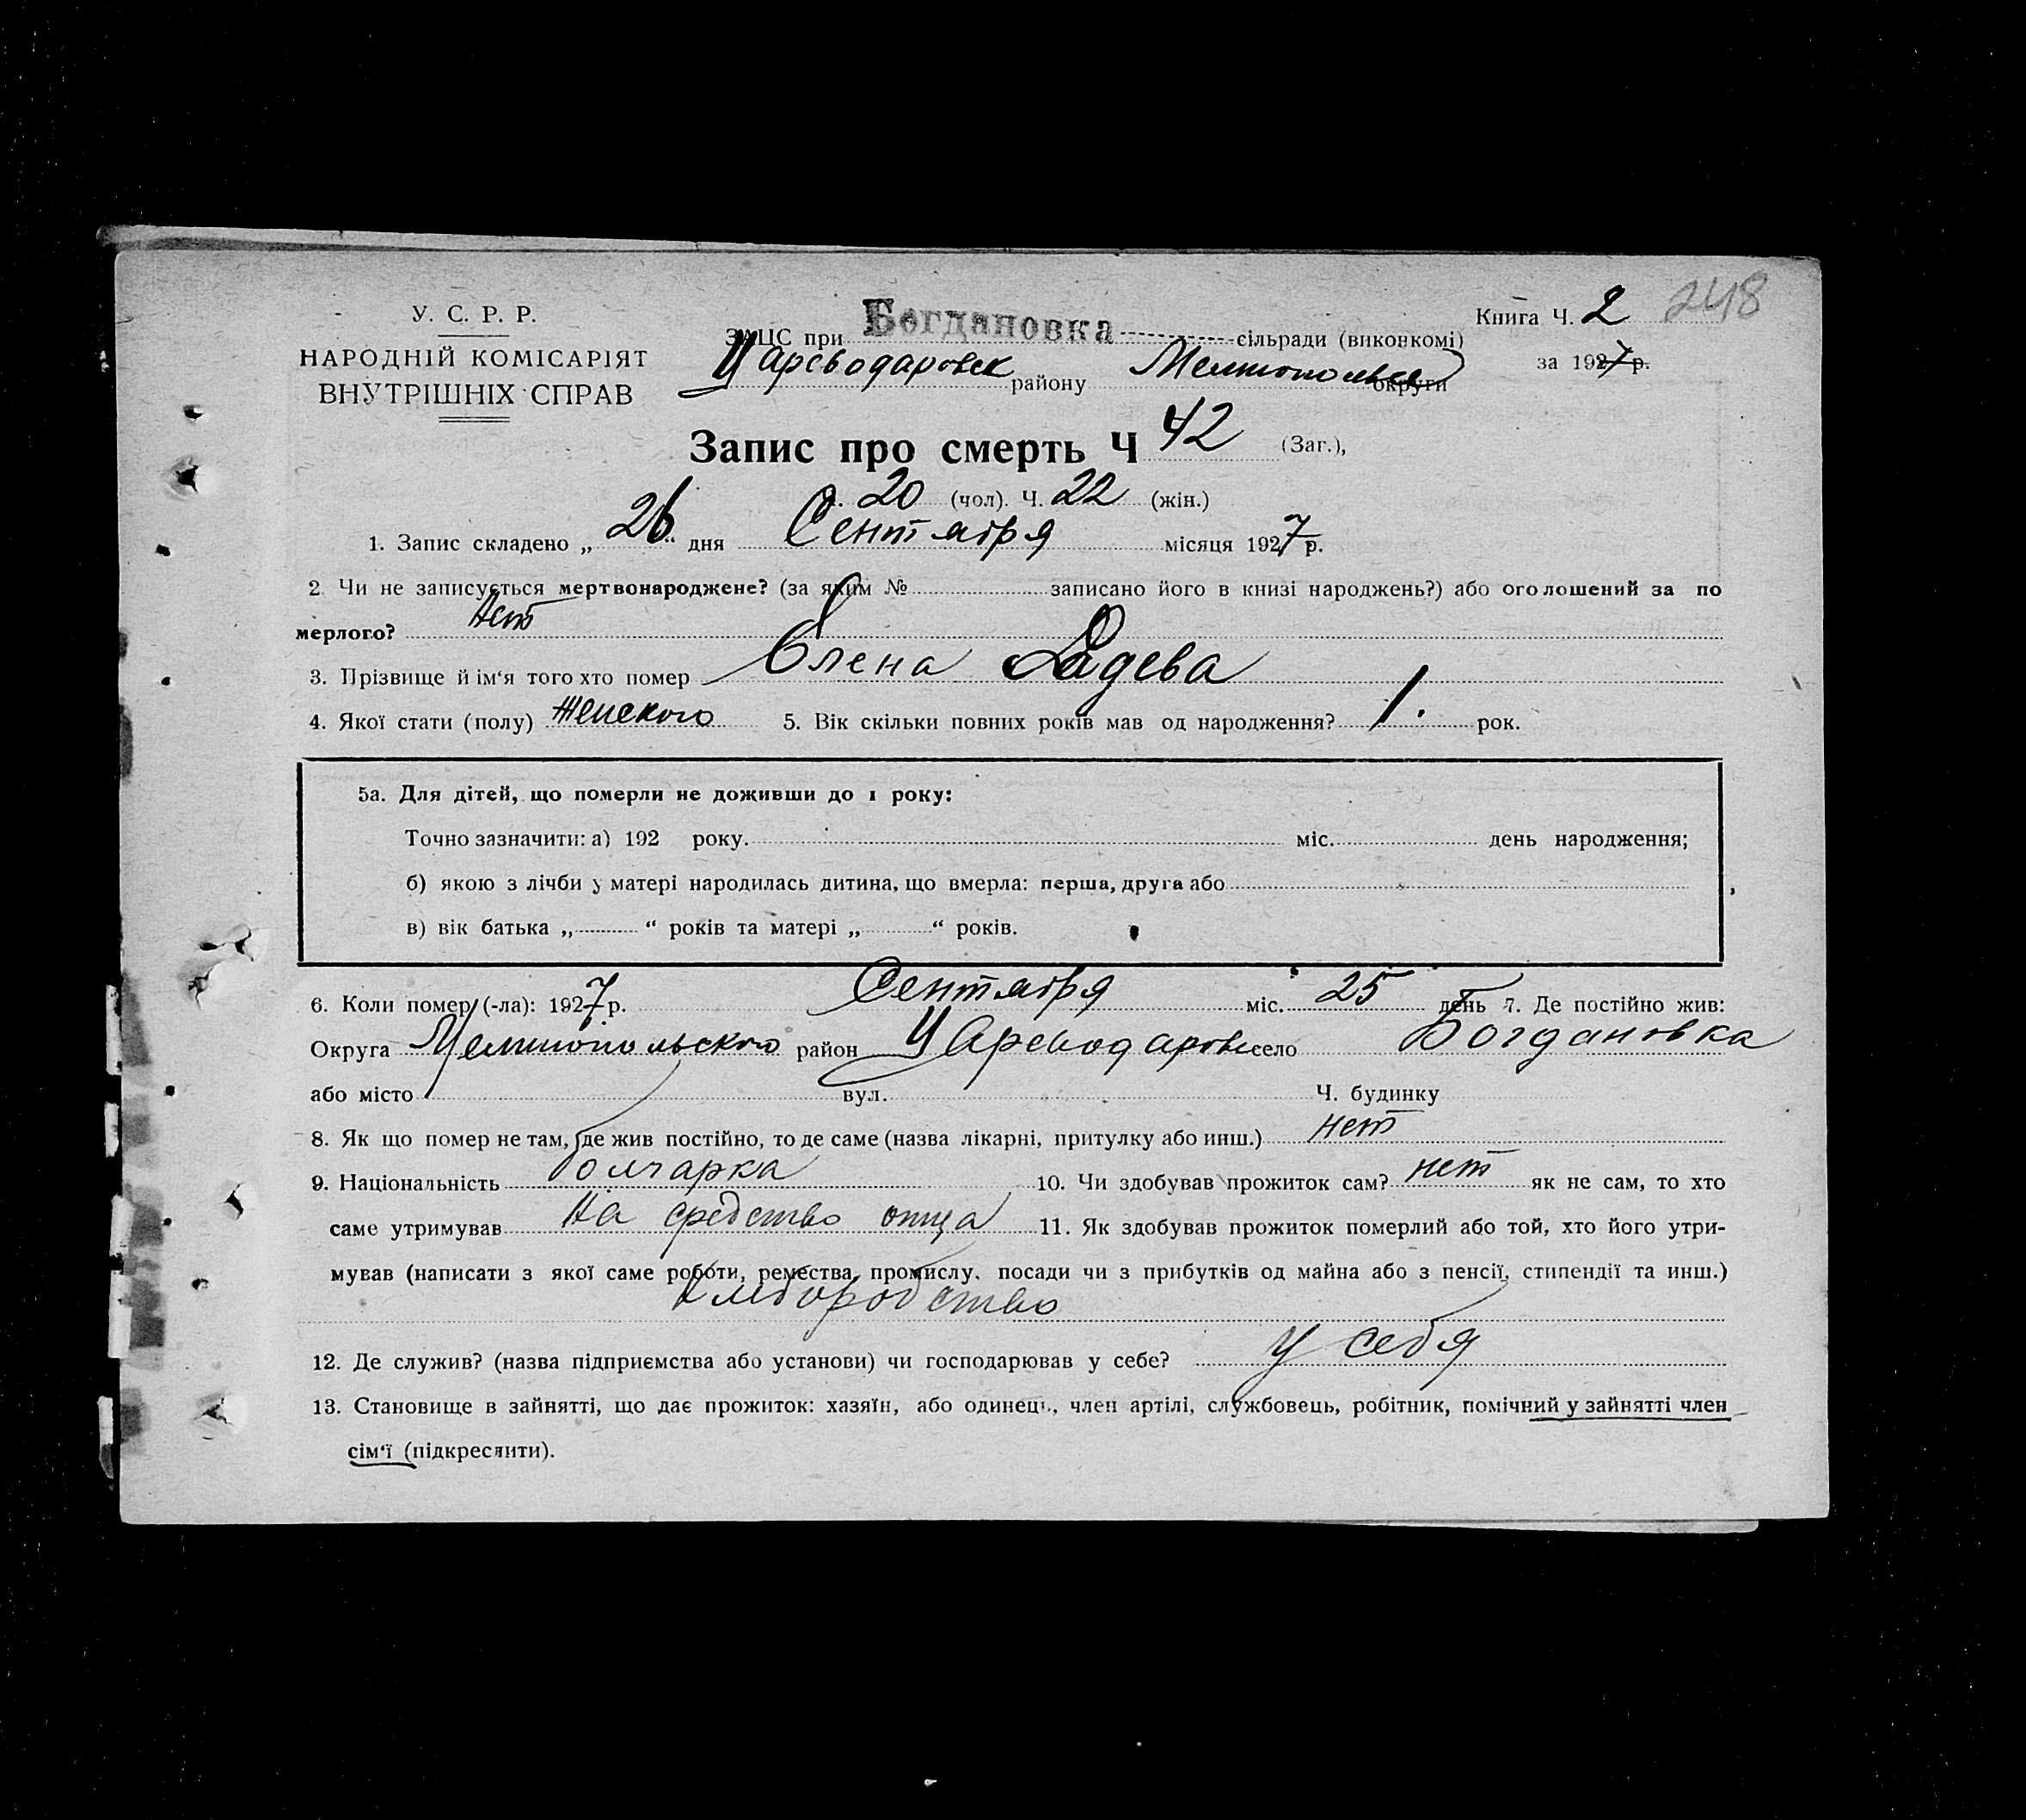 У. С. Р. Р.
НАРОДНІЙ КОМІСАРІЯТ
ВНУТРІШНІХ СПРАВ
Книга Ч. 2 248
за 1927 р.
ЗАЦС при Богдановка сільради (виконкомі)
Цареводаровск району Мелитопольск округи
Запис про смерть Ч 42 (Заг.),
20 (чол). Ч. 22 (жін.)
1. Запис складено „ 26 “ дня Сентября місяця 1927 р.
2. Чи не записується мертвонароджене? (за яким № записано його в книзі народжень?) або оголошений за по
мерлого? Нет
3. Прізвище й ім‘я того хто помер Олена Радева
4. Якої стати (полу) Женского 5. Вік скільки повних років мав од народження? 1. рок.
5а. Для дітей, що померли не доживши до 1 року:
Точно зазначити: а) 192 року. міс. день народження;
б) якою з лічби у матері народилась дитина, що вмерла: перша, друга або ,
в) вік батька „ “ років та матері „ “ років.
6. Коли помер (-ла): 1927 р. Сентября міс. 25 день 7. Де постійно жив:
Округа Мелитопольского район Цареводаровс село Богдановка
або місто вул. Ч. будинку
8. Як що помер не там, де жив постійно, то де саме (назва лікарні, притулку або инш.) нет
9. Національність болгарка 10. Чи здобував прожиток сам? нет як не сам, то хто
саме утримував На средство отца 11. Як здобував прожиток померлий або той, хто його утри-
мував (написати з якої саме роботи, ремества, промислу, посади чи з прибутків од майна або з пенсії, стипендії та инш.)
Хлебородство
12. Де служив? (назва підприємства або установи) чи господарював у себе? у себя
13. Становище в зайнятті, що дає прожиток: хазяїн, або одинець, член артілі, службовець, робітник, помічний у зайнятті член
сім‘ї (підкреслити).